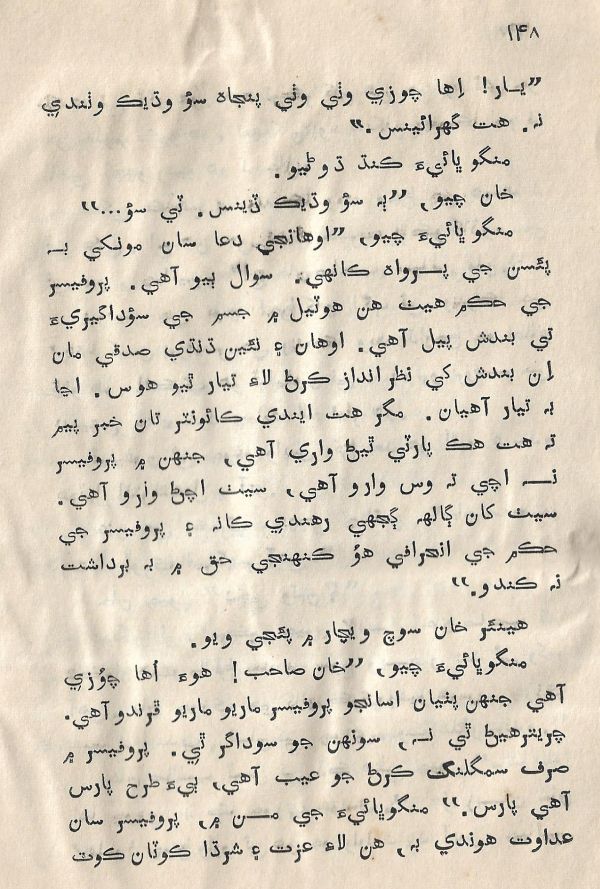 ۱۴۸
”يار! اِها چوزي وٺي وٺي پنجاه سؤ وڌيڪ وٺندي
نہ. هت گهرائينس.“
منگو ڀائيءَ ڪنڌ ڌوڻيو.
خان چيو, ”ٻہ سؤ وڌيڪ ڏينس. ٽي سؤ...“
منگو ڀائيءَ چيو, ”اوهانجي دعا سان مونکي بہ
پئسن جي پرواه ڪانهي. سوال ٻيو آهي. پروفيسر
جي حڪم هيٺ هن هوٽيل ۾ جسم جي سؤداگيريءَ
تي بندش پيل آهي. اوهان ۽ نئين ڌنڌي صدقي مان
اِن بندش کي نظرانداز ڪرڻ لاءِ تيار ٿيو هوس. اڃا
بہ تيار آهيان. مگر هت ايندي ڪائونٽر تان خبر پيم
تہ هت هڪ پارٽي ٿيڻ واري آهي, جنهن ۾ پروفيسر
نہ اچي تہ وس وارو آهي, سيٺ اچڻ وارو آهي.
سيٺ کان ڳالهہ ڳجهي رهندي ڪانہ ۽ پروفيسر جي
حڪم جي انحرافي هوُ ڪنهنجي حق ۾ بہ برداشت
نہ ڪندو.“
هينئر خان سوچ ويچار ۾ پئجي ويو.
منگوڀائيءَ چيو, ”خان صاحب! هوءَ اُها چوُزي
آهي جنهن پٺيان اسانجو پروفيسر ماريو ماريو ڦرندو آهي.
چريٽرهيڻ ٿي نہ, سونهن جو سوداگر ٿي. پروفيسر ۾
صرف سمگلنگ ڪرڻ جو عيب آهي, ٻيءَ طرح پارس
آهي پارس.“ منگوڀائيءَ جي من ۾, پروفيسر سان
عداوت هوندي بہ, هن لاءِ عزت ۽ شرڌا ڪوٽان ڪوٽ